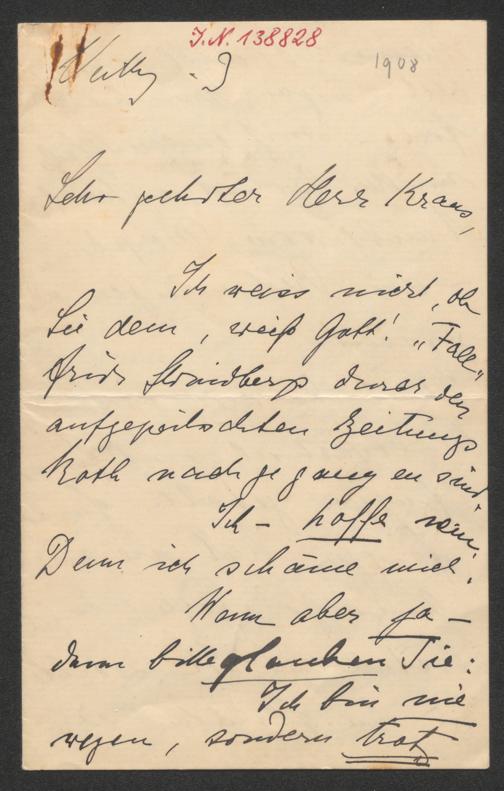 I.N. 138828
1908
Sehr geehrter Herr Kraus,
Ich weiss nicht, ob
Sie dem, weiß Gott! „Fall"
Frida Strindberg durch den
aufgepeitschten Zeitungs
koth nachgegangen sind.
Ich – hoffe nein!
Denn ich schäme mich.
Wenn aber ja –
dann bitte glauben Sie:
Ich bin nie
wegen, sondern trotz